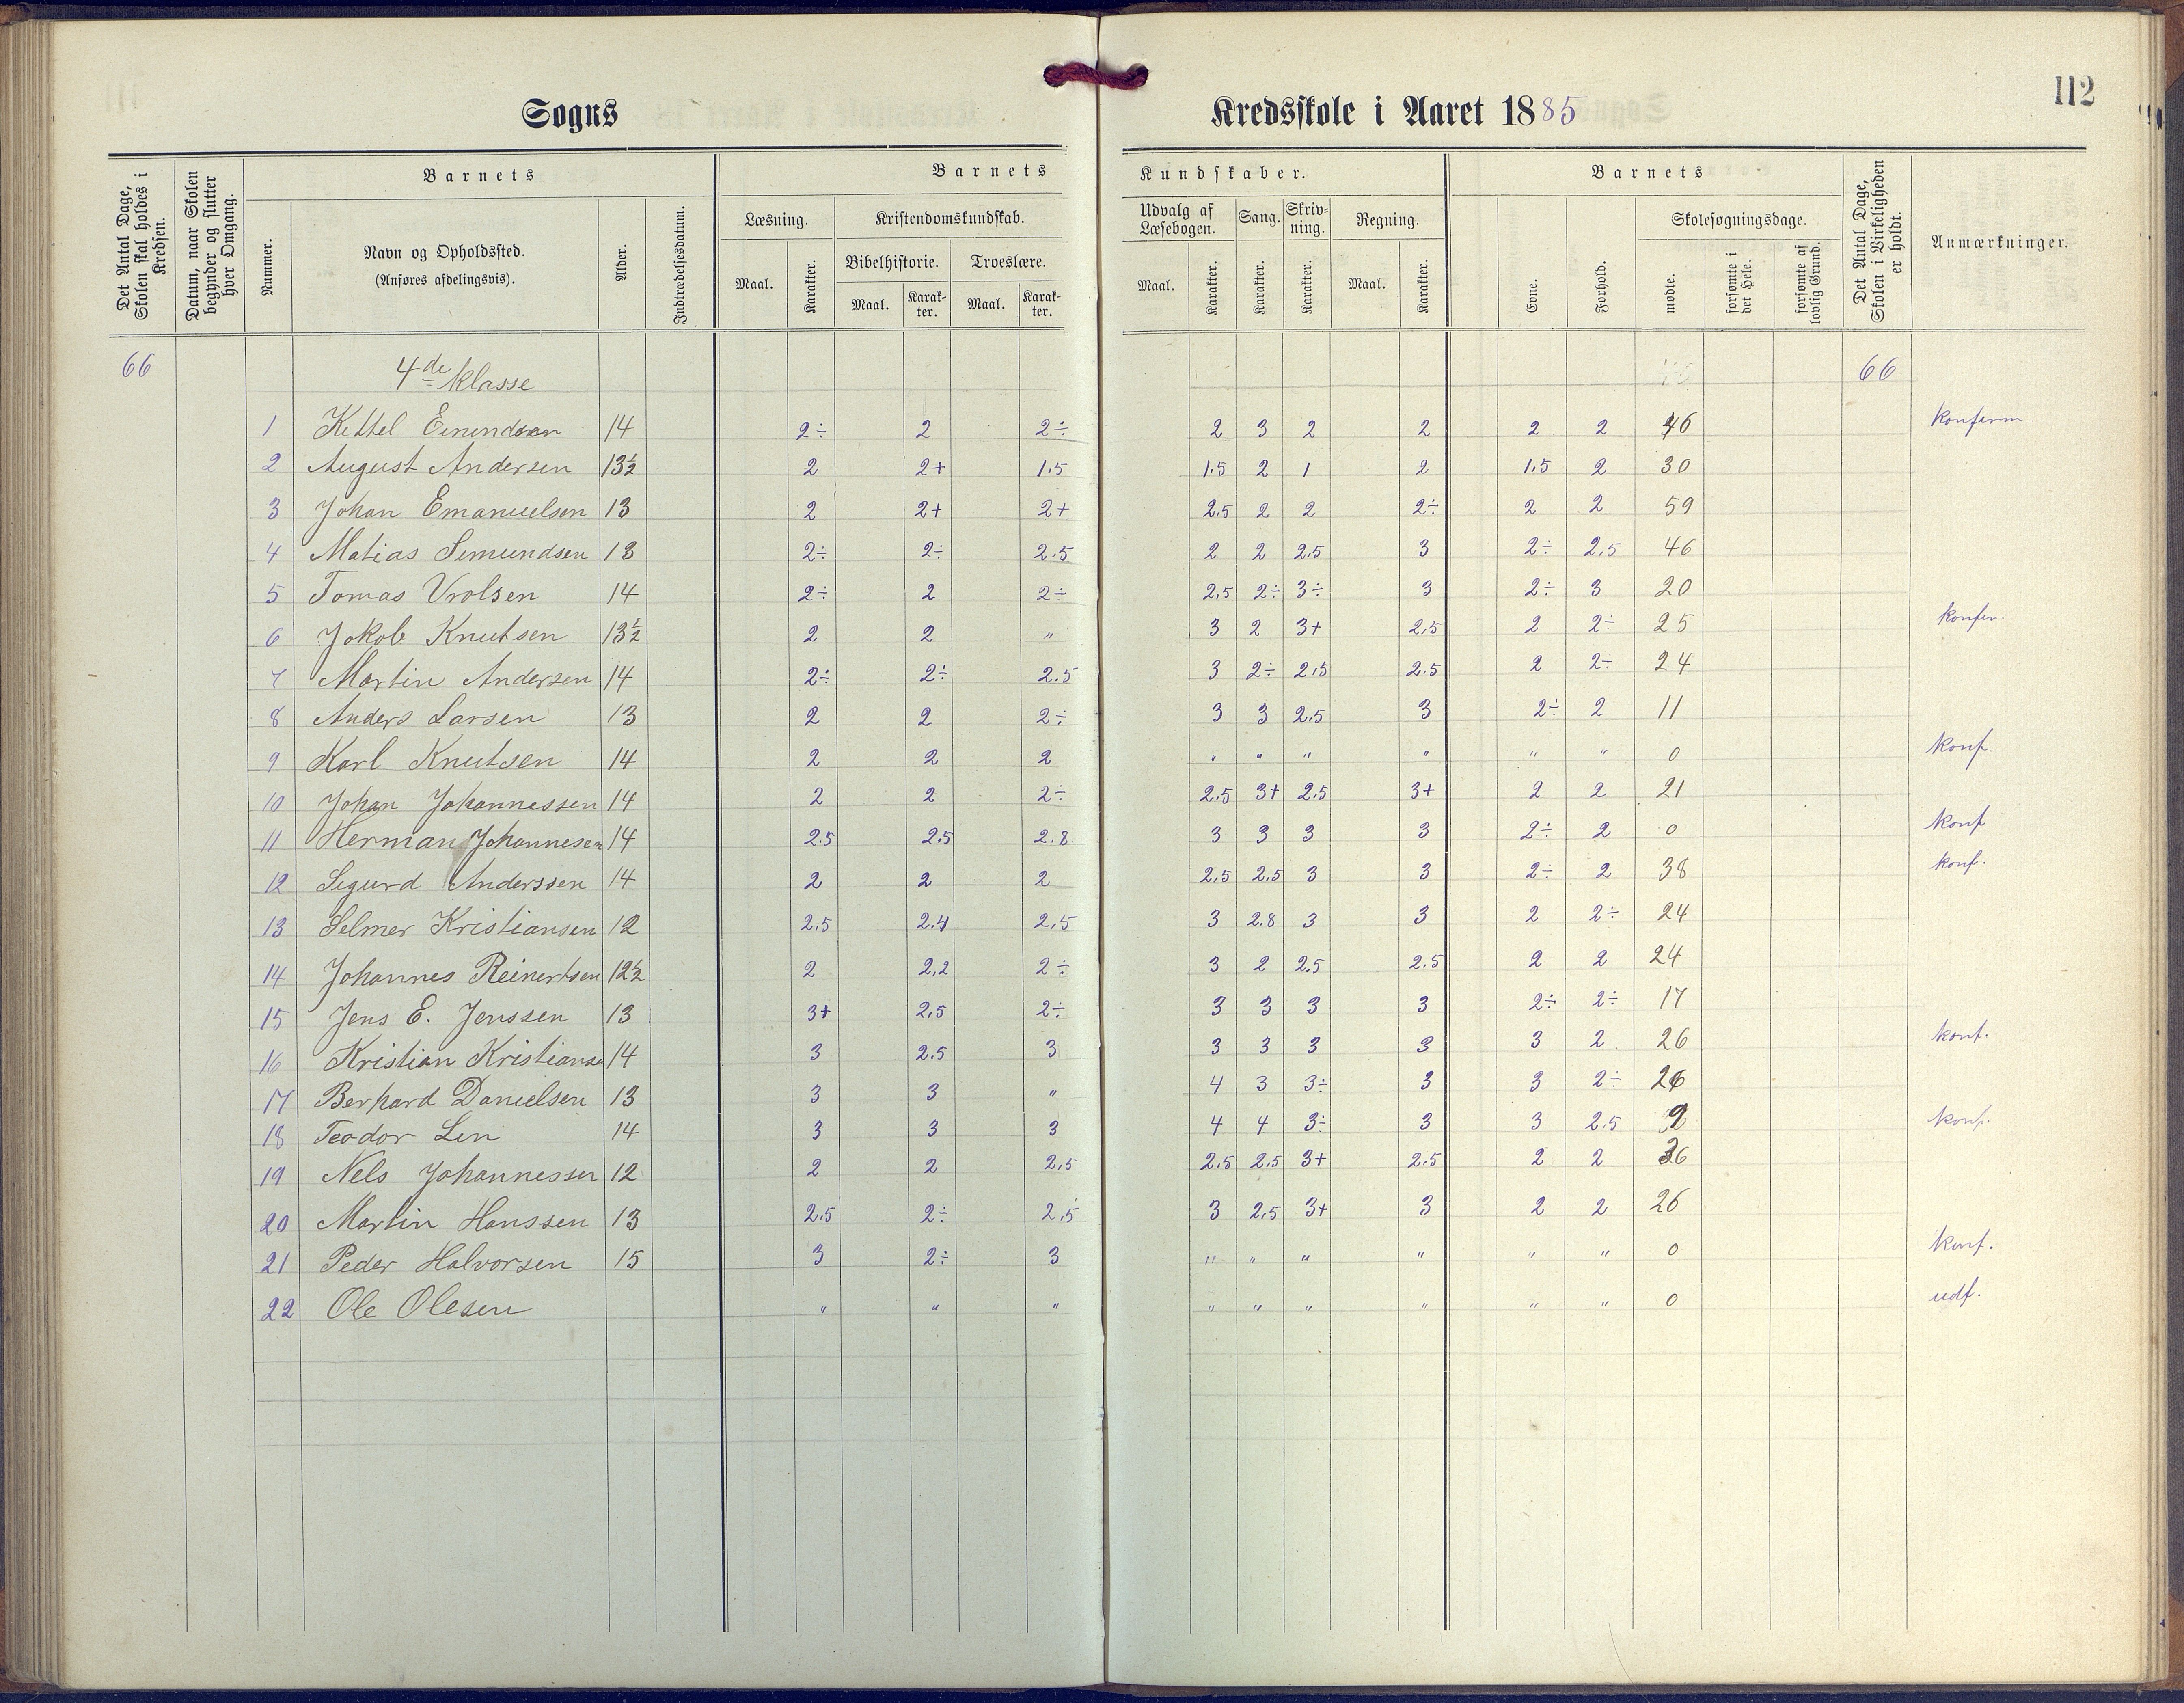 112
Sogns Kredsskole i Aaret 1885
Det Antal Dage, Skolen skal holdes i Kredsen.
Datum, naar Skolen begynder og slutter hver Omgang.
Barnets
Nummer.
Navn og Opholdssted.
(Anføres afdelingsvis).
Alder.
Indtrædelsesdatum.
Barnets Kundskaber.
Læsning.
Maal.
Karakter.
Kristendomskundskab.
Bibelhistorie.
Maal.
Karakter.
Troeslære.
Maal.
Karakter.
Udvalg af Læsebogen.
Maal.
Karakter.
Sang.
Karakter.
Skrivning.
Karakter.
Regning.
Maal.
Karakter.
Barnets
Evne.
Forhold.
Skolesøgningsdage.
mødte.
forsømte i det Hele.
forsømte af lovlig Grund.
Det Antal Dage, Skolen i Virkeligheden er holdt.
Anmærkninger.
66 4de klasse 66
1 Kittel Emundsen 14 2÷ 2 2÷ 2 3 2 2 2 2 46 konferm
2 August Andersen 13½ 2 2+ 1.5 1.5 2 1 2 1,5 2 30
3 Johan Emanuelsen 13 2 2+ 2+ 2,5 2 2 2÷ 2 2 59
4 Matias Semundsen 13 2÷ 2÷ 2.5 2 2 2,5 3 2÷ 2,5 46
5 Tomas Vrolsen 14 2÷ 2 2÷ 2,5 2÷ 3÷ 3 2÷ 3 20
6 Jokob Knutsen 13½ 2 2 " 3 2 3+ 2,5 2 2÷ 25 konfer.
7 Martin Andersen 14 2÷ 2÷ 2.5 3 2÷ 2,5 2.5 2 2÷ 24
8 Anders Larsen 13 2 2 2÷ 3 3 2.5 3 2÷ 2 11
9 Karl Knutsen 14 2 2 2 " " " " " " 0 konf.
10 Johan Johannessen 14 2 2 2÷ 2.5 3+ 2.5 3+ 2 2 21
11 Herman Johannesen 14 2.5 2.5 2.8 3 3 3 3 2÷ 2 0 konf
12 Sigurd Anderssen 14 2 2 2 2,5 2.5 3 3 2÷ 2 38 konf.
13 Selmer Kristiansen 12 2,5 2.4 2,5 3 2.8 3 3 2 2÷ 24
14 Johannes Reinertsen 12½ 2 2,2 2÷ 3 2 2.5 2.5 2 2 24
15 Jens E. Jenssen 13 3+ 2,5 2÷ 3 3 3 3 2÷ 2÷ 17
16 Kristian Kristianse 14 3 2.5 3 3 3 3 3 3 2 26 konf.
17 Berhard Danielsen 13 3 3 " 4 3 3÷ 3 3 2÷ 26
18 Teodor Lin 14 3 3 3 4 4 3÷ 3 3 2.5 2 konf.
19 Nels Johannessen 12 2 2 2,5 2.5 2,5 3+ 2.5 2 2 36
20 Martin Hanssen 13 2.5 2÷ 2,5 3 2,5 3+ 3 2 2 26
21 Peder Halvorsen 15 3 2÷ 3 " " " " " " 0 konf.
22 Ole Olesen " " " " " " " " " 0 udf.